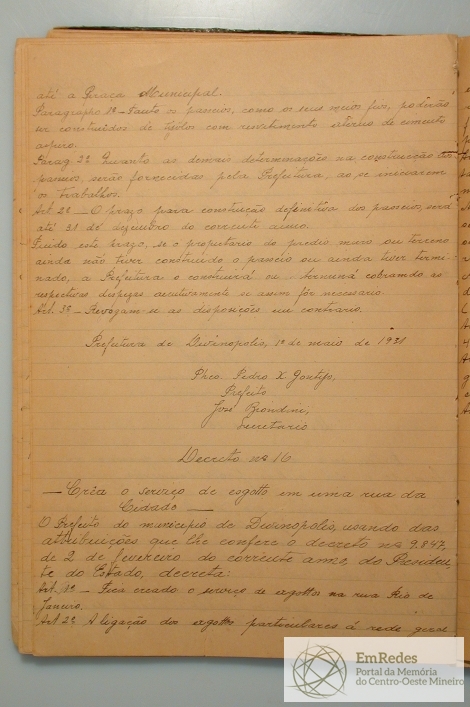 até a Praça Municipal.
Paragrapho 1º - Tanto os passeios, como os seus meios fios, poderão
ser construidos de tijolos com revestimento externo de cimento
aspero.
Parag. 2º Quanto as demais determinações na construcção dos
passeios, serão fornecidas pela Prefeitura, ao se iniciarem
os trabalhos.
Art. 2º - O prazo para construição definitiva dos passeios, será
até 31 de dezembro do corrente anno.
Findo este prazo, se o proprietario do predio muro ou terreno
ainda não tiver construido o passeio ou ainda tiver termi-
nado, a Prefeitura o construirá ou terminá cobrando as
respectivas despezas executivamente se assim fôr necessario.
Art. 3º - Revogam-se as disposições em contrario.
Prefeitura de Divinopolis, 1º de maio de 1931
Phco. Pedro X Gontijo,
Prefeito
José Biondini,
Secretario
Decreto nº 16
— Cria o serviço de esgotto em uma rua da
Cidade —
O Prefeito do municipio de Divinopolis, usando das
attribuições que lhe confere o decreto nº 9.847,
de 2 de fevereiro do corrente anno, do Presiden-
te do Estado, decreta:
Art. 1º - Fica creado o serviço de esgottos na rua Rio de
Janeiro.
Art. 2º A ligação dos esgottos particulares á rede geral
EmRedes
Portal da Memória
do Centro-Oeste Mineiro